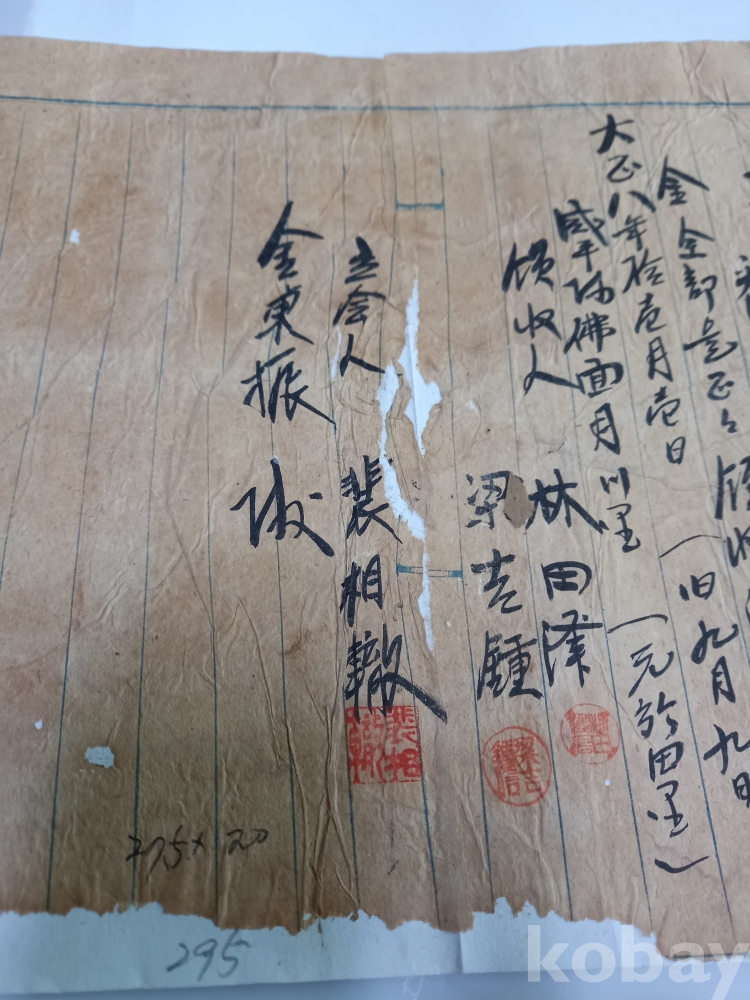 領收
金全部是正之
(旧九月九日
大正八年拾壱月壱日
(元於田里)
咸平郡佛面月川里
領收人 林田澤
梁吉鍾
立會人 裴相轍
金東振 殿
27.5 x 20
295
kobay